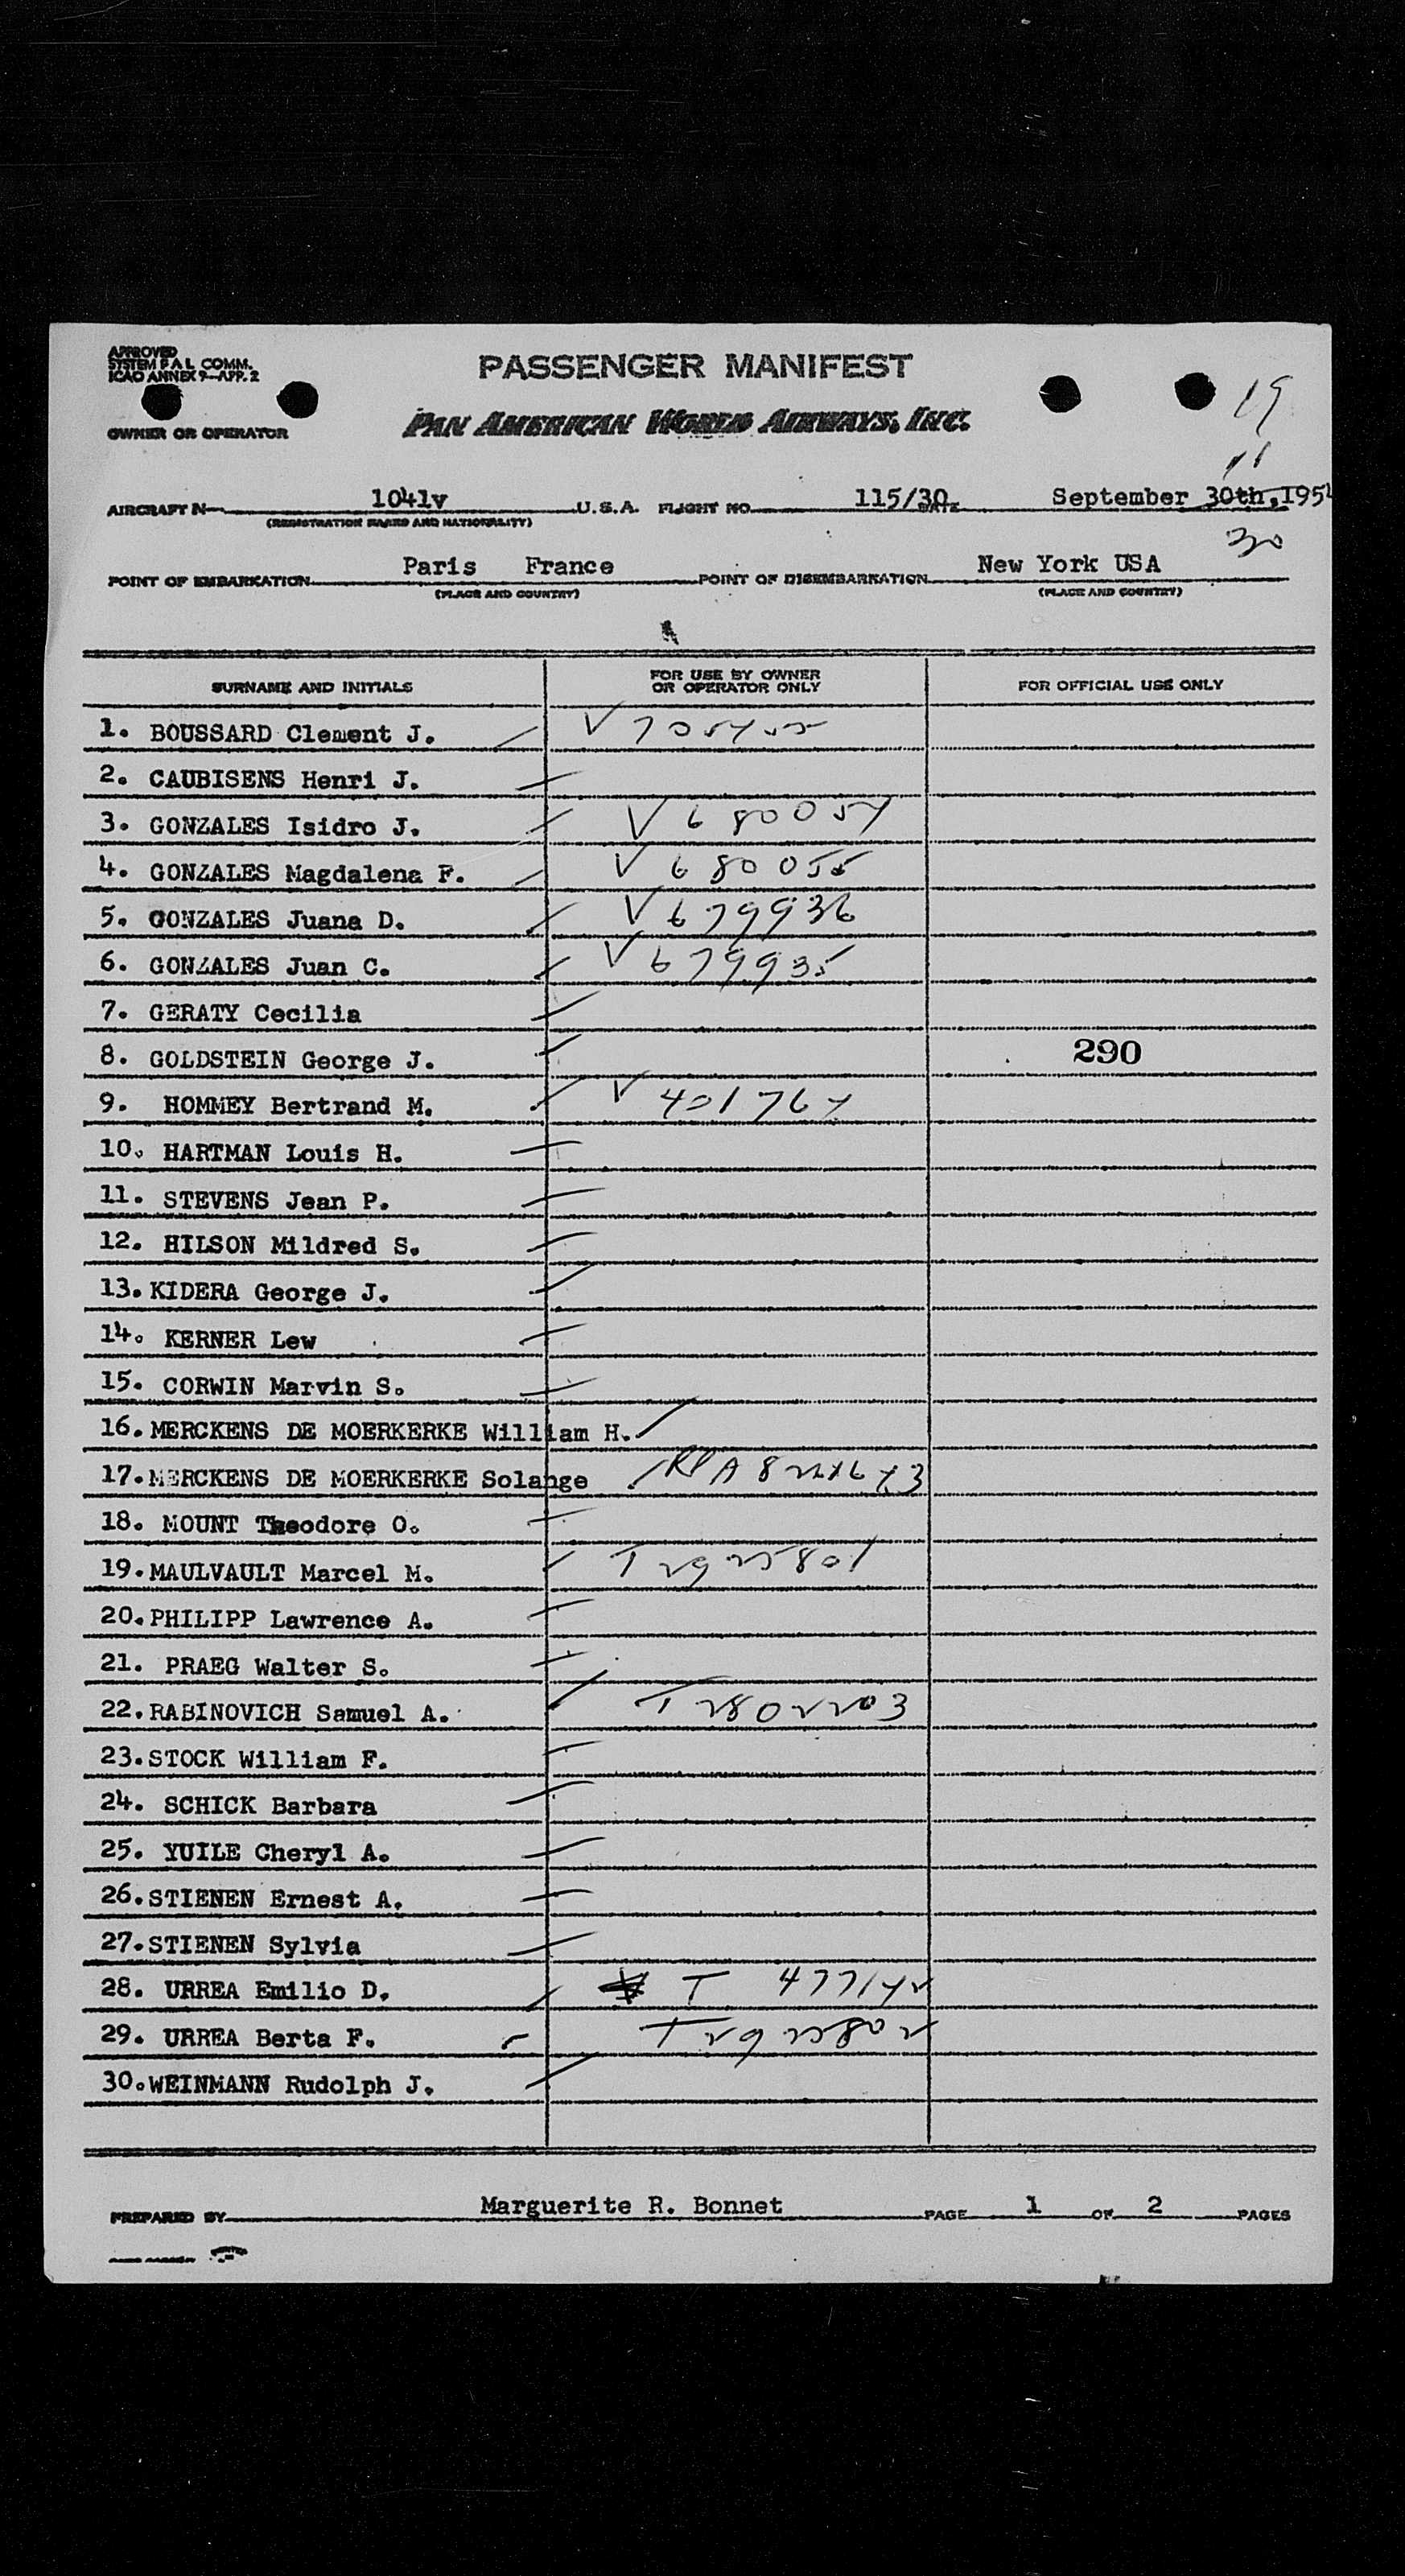 APPROVED
SYSTEM P A L COMM.
ICAO ANNEX 9-APP. 2
PASSENGER MANIFEST
OWNER OR OPERATOR
PAN AMERICAN WORLD AIRWAYS, INC.
19
11
AIRCRAFT N 1041v U.S.A. FLIGHT NO. 115/30 DATE September 30th, 1954
(REGISTRATION MARKS AND NATIONALITY)
30
POINT OF EMBARKATION Paris France POINT OF DISEMBARKATION New York USA
(PLACE AND COUNTRY) (PLACE AND COUNTRY)
SURNAME AND INITIALS FOR USE BY OWNER OR OPERATOR ONLY FOR OFFICIAL USE ONLY
1. BOUSSARD Clement J.
2. CAUBISENS Henri J.
3. GONZALES Isidro J. V 680054
4. GONZALES Magdalena F. V 680055
5. GONZALES Juana D. V 679936
6. GONZALES Juan C. V 679935
7. GERATY Cecilia
8. GOLDSTEIN George J. 290
9. HOMMEY Bertrand M. V 401764
10. HARTMAN Louis H.
11. STEVENS Jean P.
12. HILSON Mildred S.
13. KIDERA George J.
14. KERNER Lew
15. CORWIN Marvin S.
16. MERCKENS DE MOERKERKE William H.
17. MERCKENS DE MOERKERKE Solange
18. MOUNT Theodore O.
19. MAULVAULT Marcel M. T 2925801
20. PHILIPP Lawrence A.
21. PRAEG Walter S.
22. RABINOVICH Samuel A. T 2802203
23. STOCK William F.
24. SCHICK Barbara
25. YUILE Cheryl A.
26. STIENEN Ernest A.
27. STIENEN Sylvia
28. URREA Emilio D. T 477142
29. URREA Berta F. T 2925802
30. WEINMANN Rudolph J.
PREPARED BY Marguerite R. Bonnet PAGE 1 OF 2 PAGES